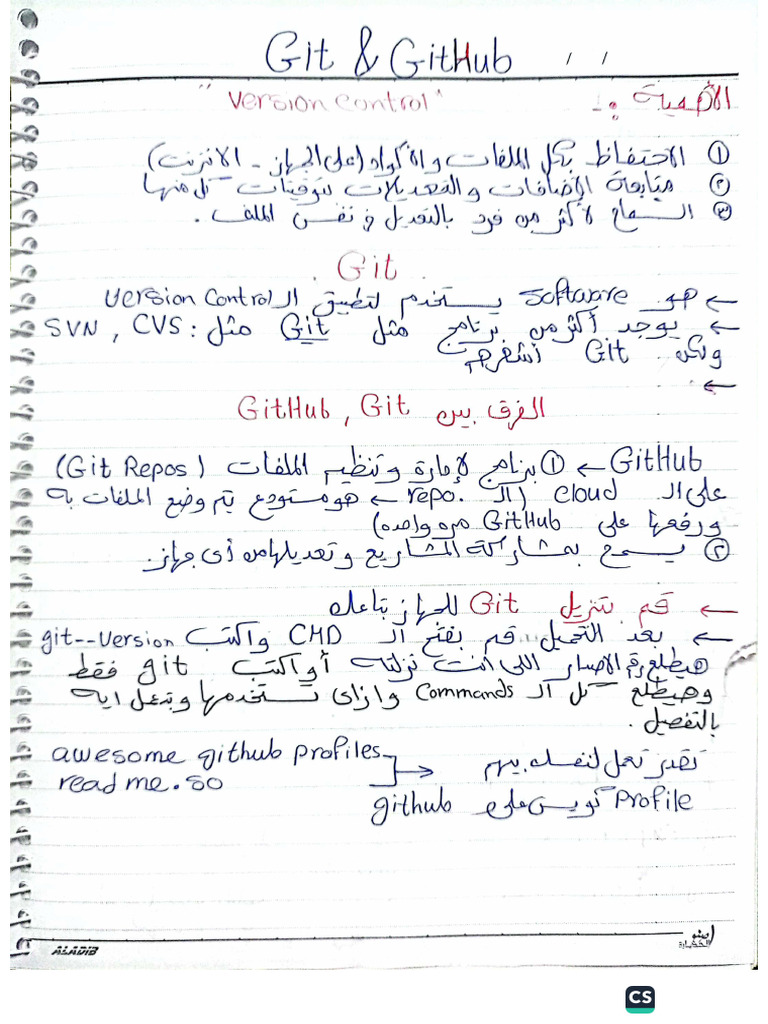 Git & GitHub / /
الأهمية :- "Version control"
① الاحتفاظ بكل الملفات والأكواد (على الجهاز - الانترنت)
② متابعة الإضافات والتعديلات بتوقيتات كل منها
③ السماح لأكثر من فرد بالتعديل في نفس الملف .
. Git .
← هو Software يستخدم لتطبيق الـ Version Control
← يوجد أكثر من برنامج مثل Git مثل : SVN , CVS
ولكن Git أشهرهم
←
الفرق بين GitHub , Git
GitHub ← ① برنامج لإدارة وتنظيم الملفات (Git Repos)
على الـ cloud (الـ repo. ← هو مستودع يتم وضع الملفات به
ورفعها على GitHub مره واحده)
② يسمح بمشاركة المشاريع وتعديلها من أي جهاز.
← قم بتنزيل Git للجهاز بتاعك
← بعد التحميل قم بفتح الـ CMD واكتب git--Version
هيطلع رقم الاصدار اللى انت نزلته أو اكتب git فقط
وهيطلع كل الـ Commands وازاى تستخدمها وبتعمل ايه
بالتفصيل .
awesome github profiles
readme.so
تقدر تعمل لنفسك بيهم
Profile كويس على github
ALADIB
CS